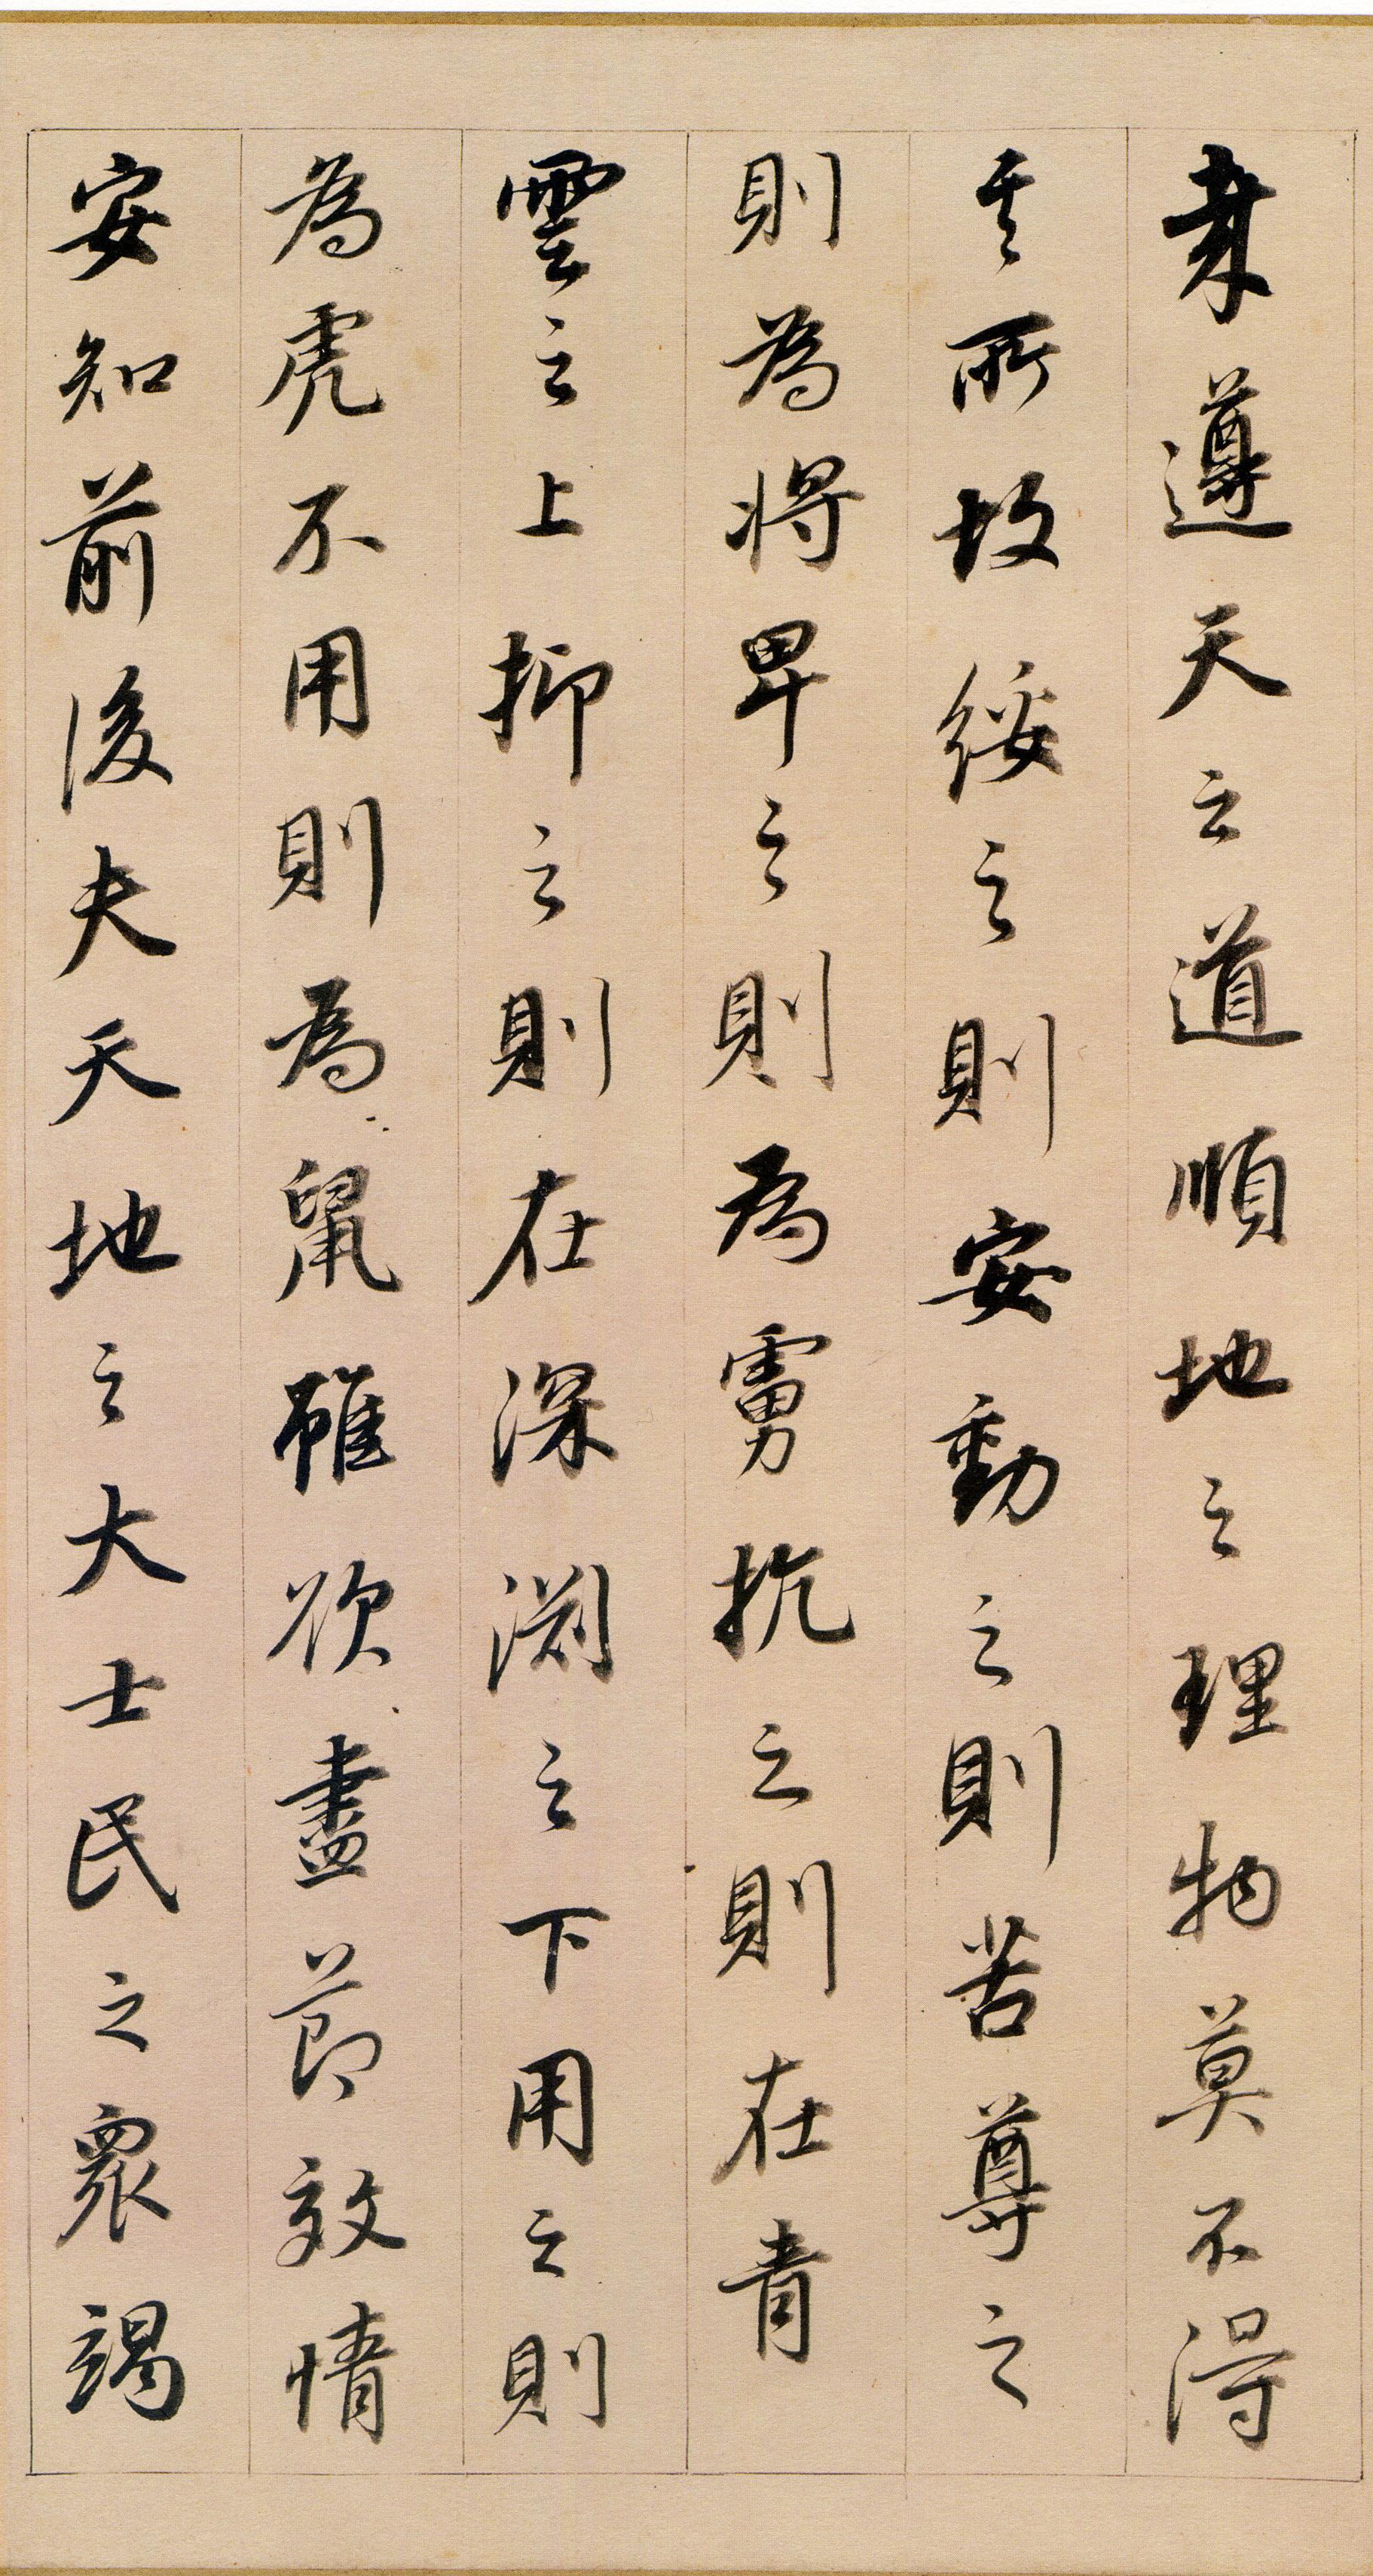 異遵天之道順地之理物莫不得
其所故綏之則安動之則苦尊之
則為將卑之則為虜抗之則在青
雲之上抑之則在深淵之下用之則
為虎不用則為鼠雖欲盡節效情
安知前後夫天地之大士民之眾竭